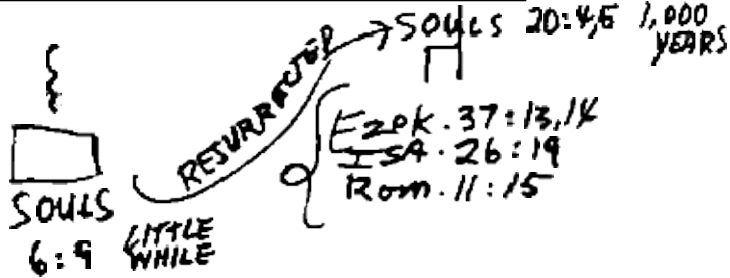 SOULS 20:4,5 1,000
YEARS
RESURRECTED
Ezek. 37:13,14
ISA. 26:19
Rom. 11:15
SOULS
6:9
LITTLE
WHILE